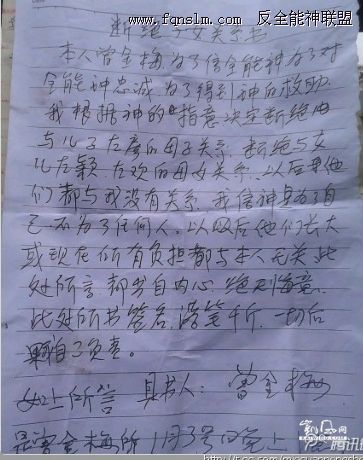 www.fqnslm.com 反全能神联盟
断绝子女关系书
本人曾金梅为了信全能神为了对
全能神忠诚为了得到神的救助
我根据神的指意决定断绝由
与儿子左 的母子关系,断绝与女
儿左颖、左欢的母女关系,以后其他
们都与我没有关系,我信神是为了自
己,不为了任何人。以后他们长大
或现在所有负担都与本人无关,此
处所言都出自内心,绝无悔意。
此处所书签名,落笔千斤,一切后
果自己负责。
如上所言 具书人: 曾金梅
是曾金梅所 1月3号 晚上
凯风网
腾讯